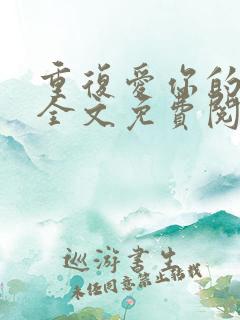 重復愛你的
全文免費閱
巡游書生
未經同意禁止轉載